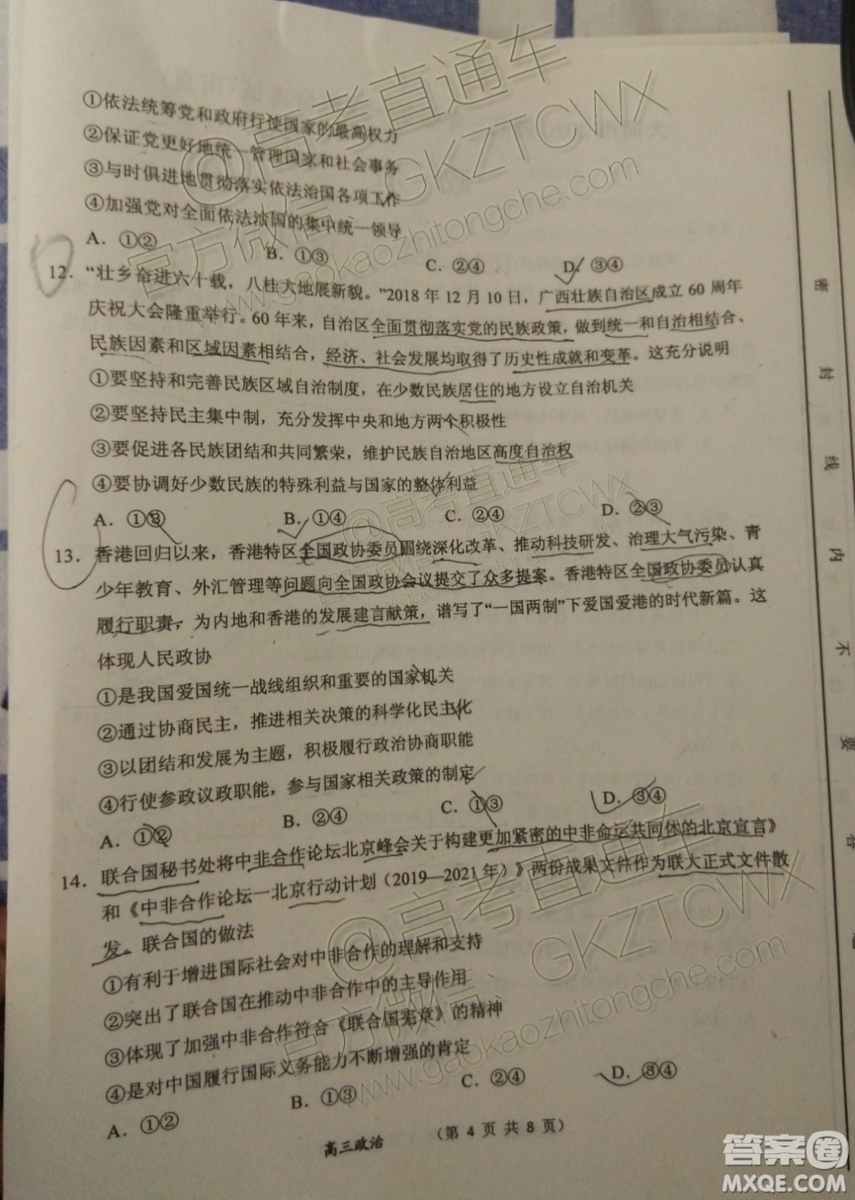 ①依法统筹党和政府行使国家的最高权力
②保证党更好地统一管理国家和社会事务
③与时俱进地贯彻落实依法治国各项工作
④加强党对全面依法治国的集中统一领导
A. ①② B. ①③ C. ②④ D. ③④
12. “壮乡奋进六十载，八桂大地展新貌。”2018 年 12 月 10 日，广西壮族自治区成立 60 周年
庆祝大会隆重举行。60 年来，自治区全面贯彻落实党的民族政策，做到统一和自治相结合、
民族因素和区域因素相结合，经济、社会发展均取得了历史性成就和变革。这充分说明
①要坚持和完善民族区域自治制度，在少数民族居住的地方设立自治机关
②要坚持民主集中制，充分发挥中央和地方两个积极性
③要促进各民族团结和共同繁荣，维护民族自治地区高度自治权
④要协调好少数民族的特殊利益与国家的整体利益
A. ①③ B. ①④ C. ②④ D. ②③
13. 香港回归以来，香港特区全国政协委员围绕深化改革、推动科技研发、治理大气污染、青
少年教育、外汇管理等问题向全国政协会议提交了众多提案。香港特区全国政协委员认真
履行职责，为内地和香港的发展建言献策，谱写了“一国两制”下爱国爱港的时代新篇。这
体现人民政协
①是我国爱国统一战线组织和重要的国家机关
②通过协商民主，推进相关决策的科学化民主化
③以团结和发展为主题，积极履行政治协商职能
④行使参政议政职能，参与国家相关政策的制定
A. ①② B. ②④ C. ①③ D. ③④
14. 联合国秘书处将中非合作论坛北京峰会关于构建更加紧密的中非命运共同体的北京宣言》
和《中非合作论坛一北京行动计划（2019—2021 年）》两份成果文件作为联大正式文件散
发。联合国的做法
①有利于增进国际社会对中非合作的理解和支持
②突出了联合国在推动中非合作中的主导作用
③体现了加强中非合作符合《联合国宪章》的精神
④是对中国履行国际义务能力不断增强的肯定
A. ①② B. ①③ C. ②④ D. ③④
高三政治 （第 4 页 共 8 页）
密
封
线
内
不
要
答
@高考直通车
官方微信: GKZTCWX
www.gaokaozhitongche.com
@高考直通车
GKZTCWX
@高考直通车
官方微信: GKZTCWX
www.gaokaozhitongche.com
答案圈
MXQE.COM